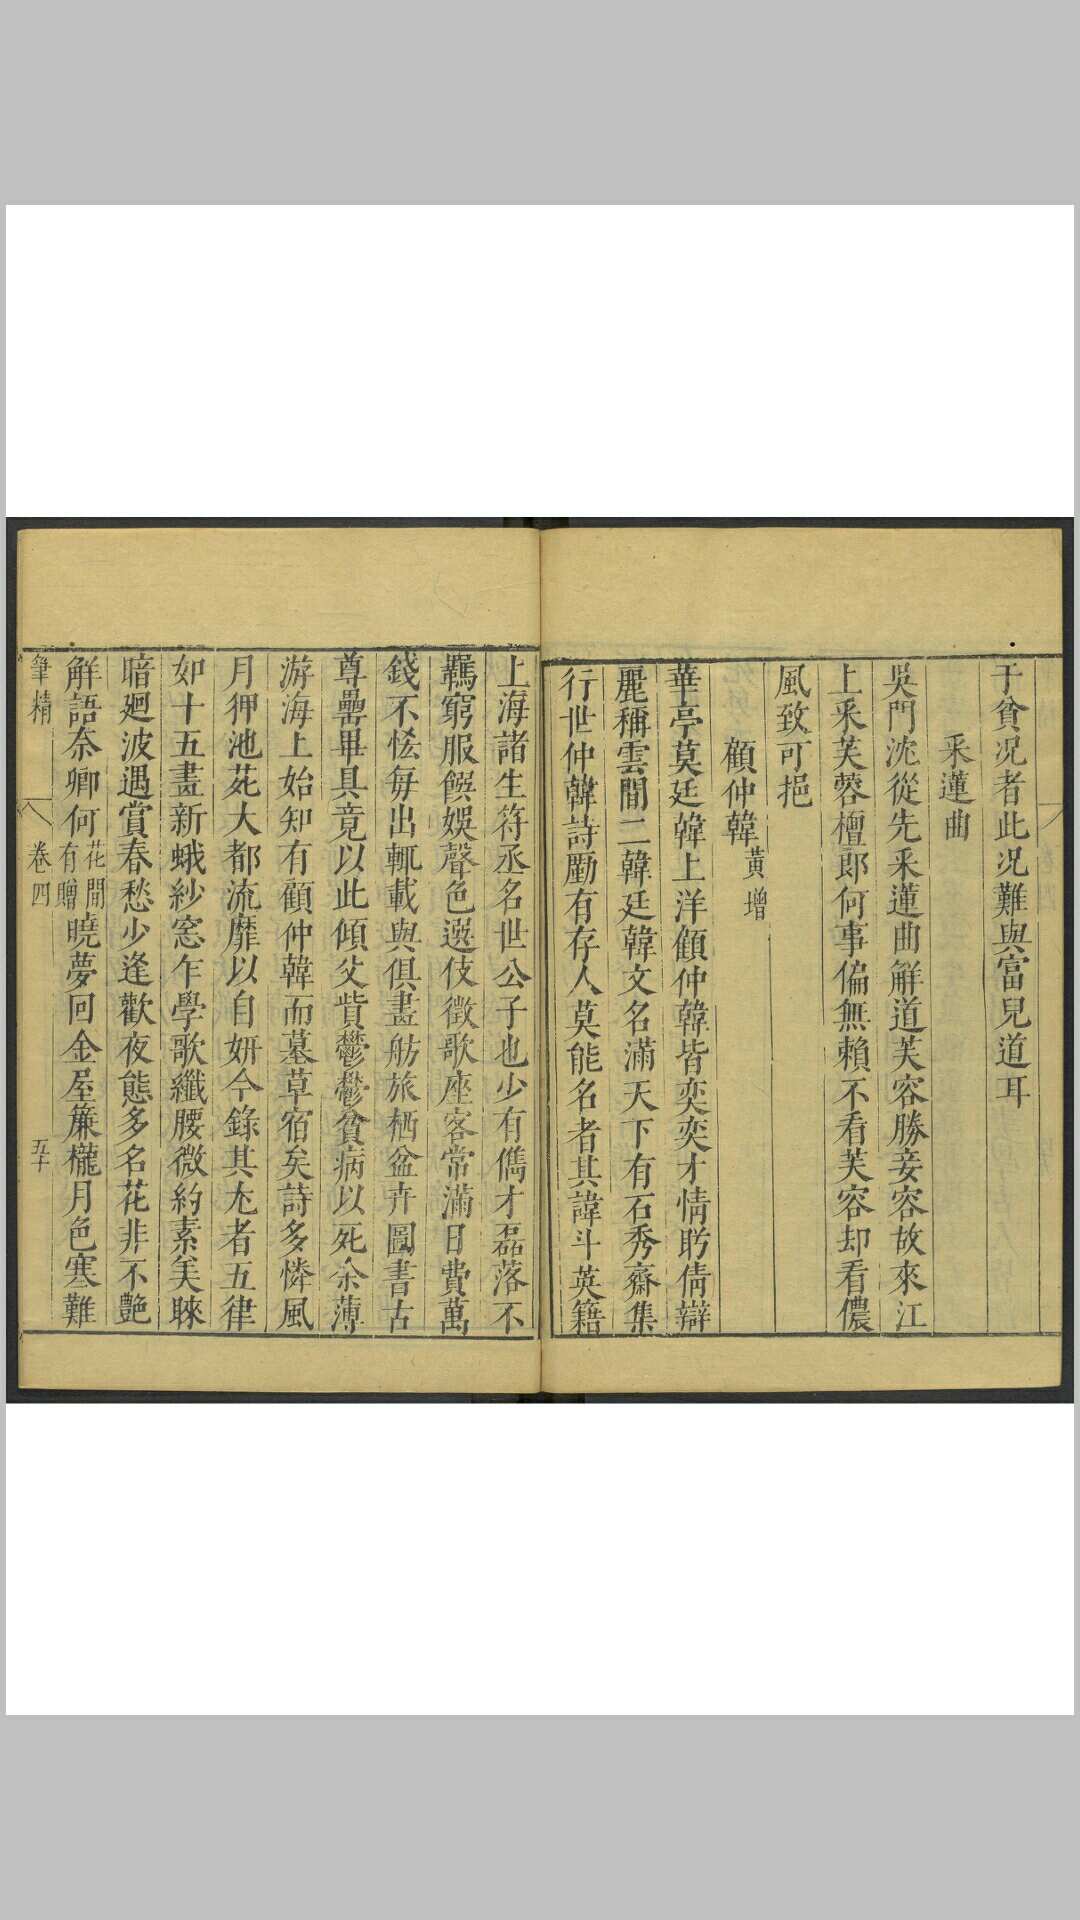 于貧况者此况難與富兒道耳
采蓮曲
吳門沈從先采蓮曲解道芙容勝妾容故來江
上采芙蓉檀郎何事偏無賴不看芙容却看儂
風致可挹
顧仲韓黃增
華亭莫廷韓上洋顧仲韓皆奕奕才情盻倩辯
麗稱雲間二韓廷韓文名滿天下有石秀齋集
行世仲韓詩尠有存人莫能名者其諱斗英籍
上海諸生符丞名世公子也少有儁才磊落不
羈窮服饌娛聲色選伎徵歌座客常滿日費萬
錢不恡每出輒載與俱畫舫旅栖盆卉圖書古
尊罍畢具竟以此傾父貲鬱鬱貧病以死余薄
游海上始知有顧仲韓而墓草宿矣詩多憐風
月狎池苑大都流靡以自妍今錄其尤者五律
如十五畫新蛾紗窓乍學歌纖腰微約素羙睞
暗廻波遇賞春愁少逢歡夜態多名花非不艶
解語奈卿何花間有贈曉夢回金屋簾櫳月色寒難
筆精
卷四
五十